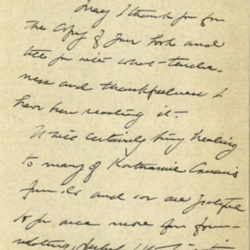 May I thank you for
the copy of your book and
tell you with what tender-
ness and thankfulness I
have been reading it.
It will certainly bring healing
to many of Katharine
and we are grateful
to you once more for